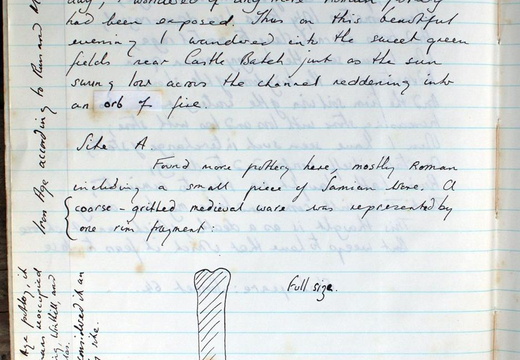 day, I wondered if any more Roman pottery
had been exposed. Thus on this beautiful
evening I wandered into the sweet green
fields near Castle Batch just as the sun
swung low across the channel reddening into
an orb of fire.
Site A
Found more pottery here, mostly Roman
including a small piece of Samian ware. A
coarse-gritted medieval ware was represented by
one rim fragment:
Full size.
Iron Age according to them and
Age pottery, it
unoccupied
and
considered it an
site.